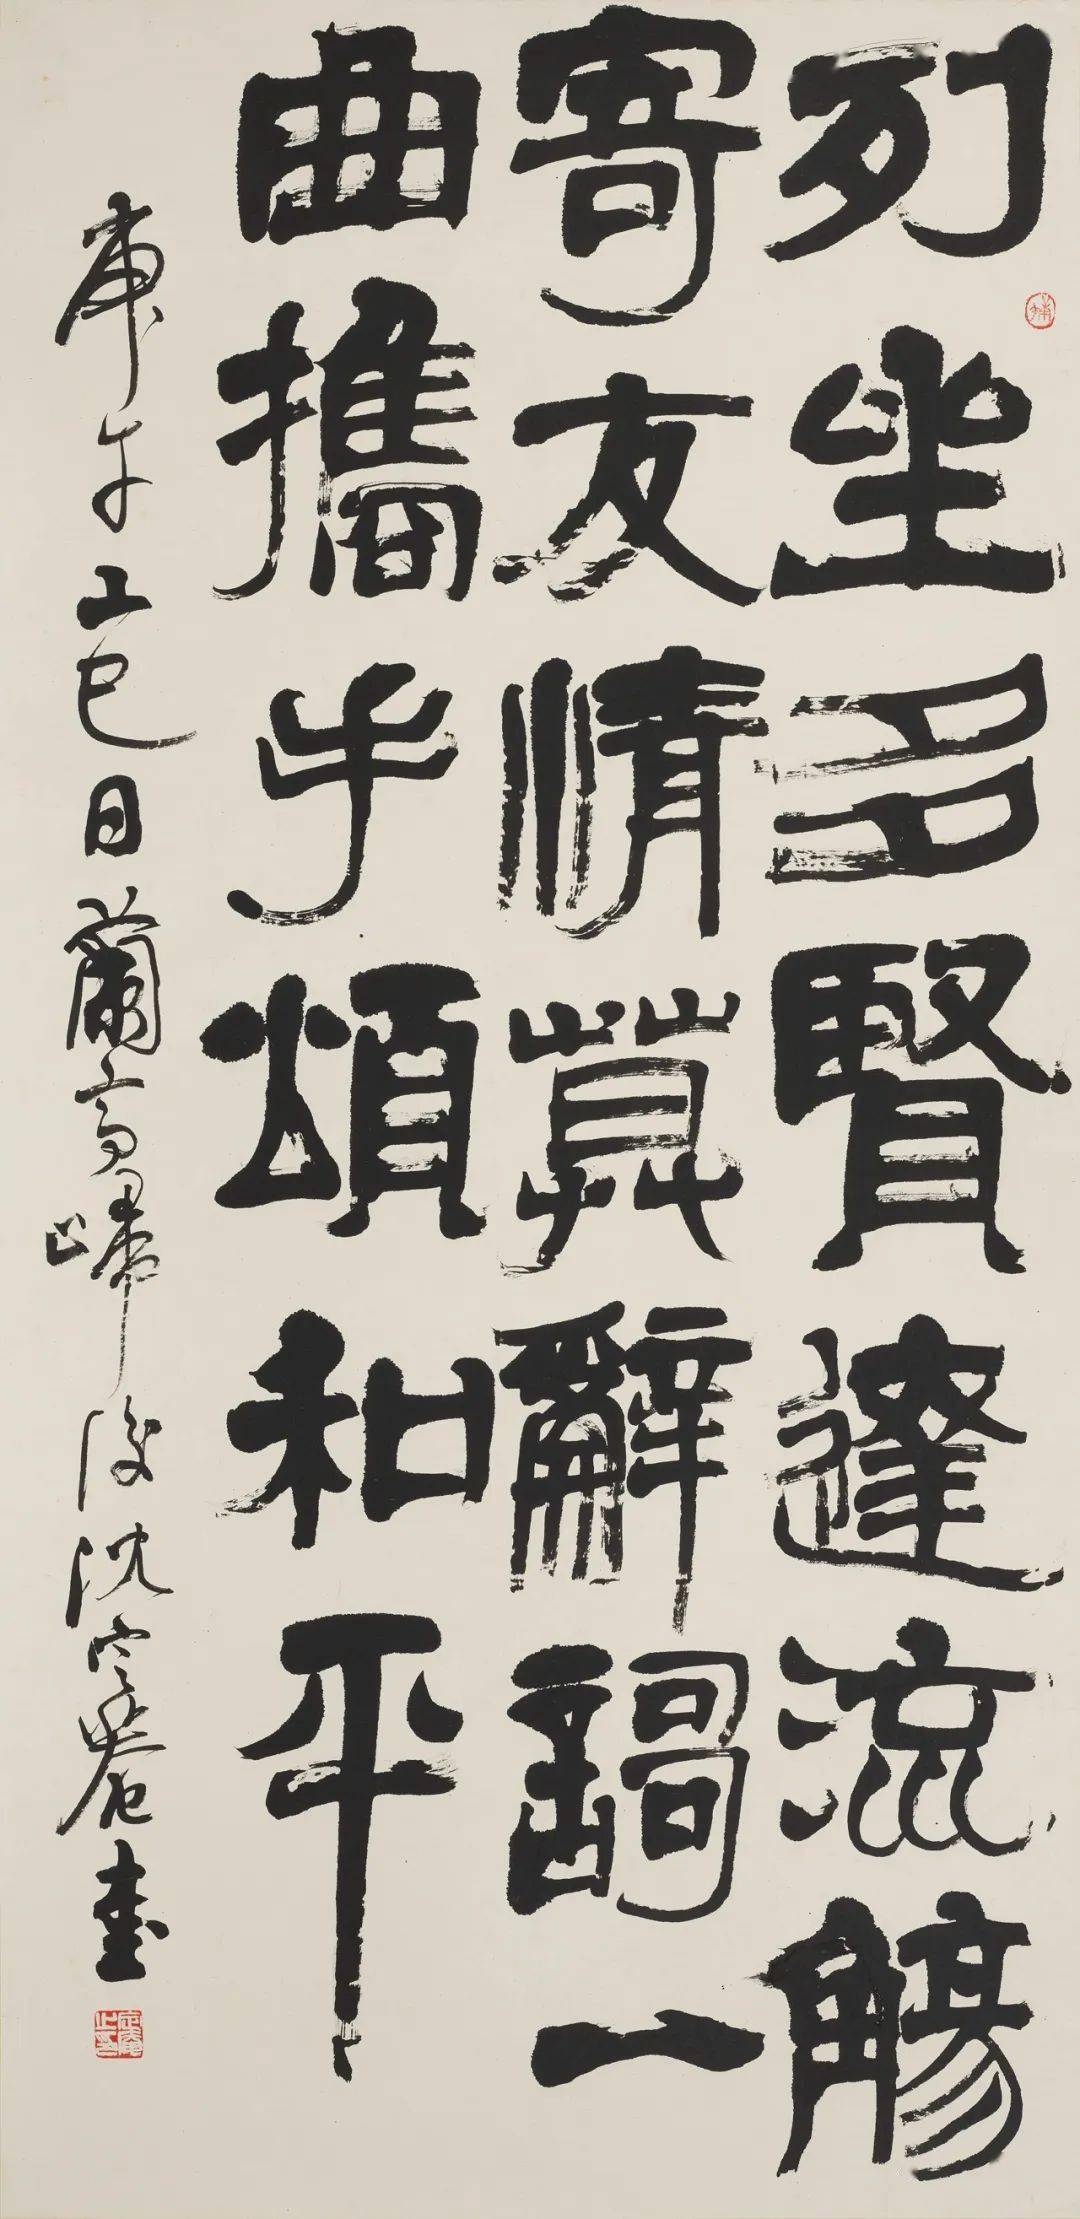 列坐多賢達流觴
寄友情莫辭詞一
曲攜手頌和平
庚午上巳日蘭亭歸後沈定庵書